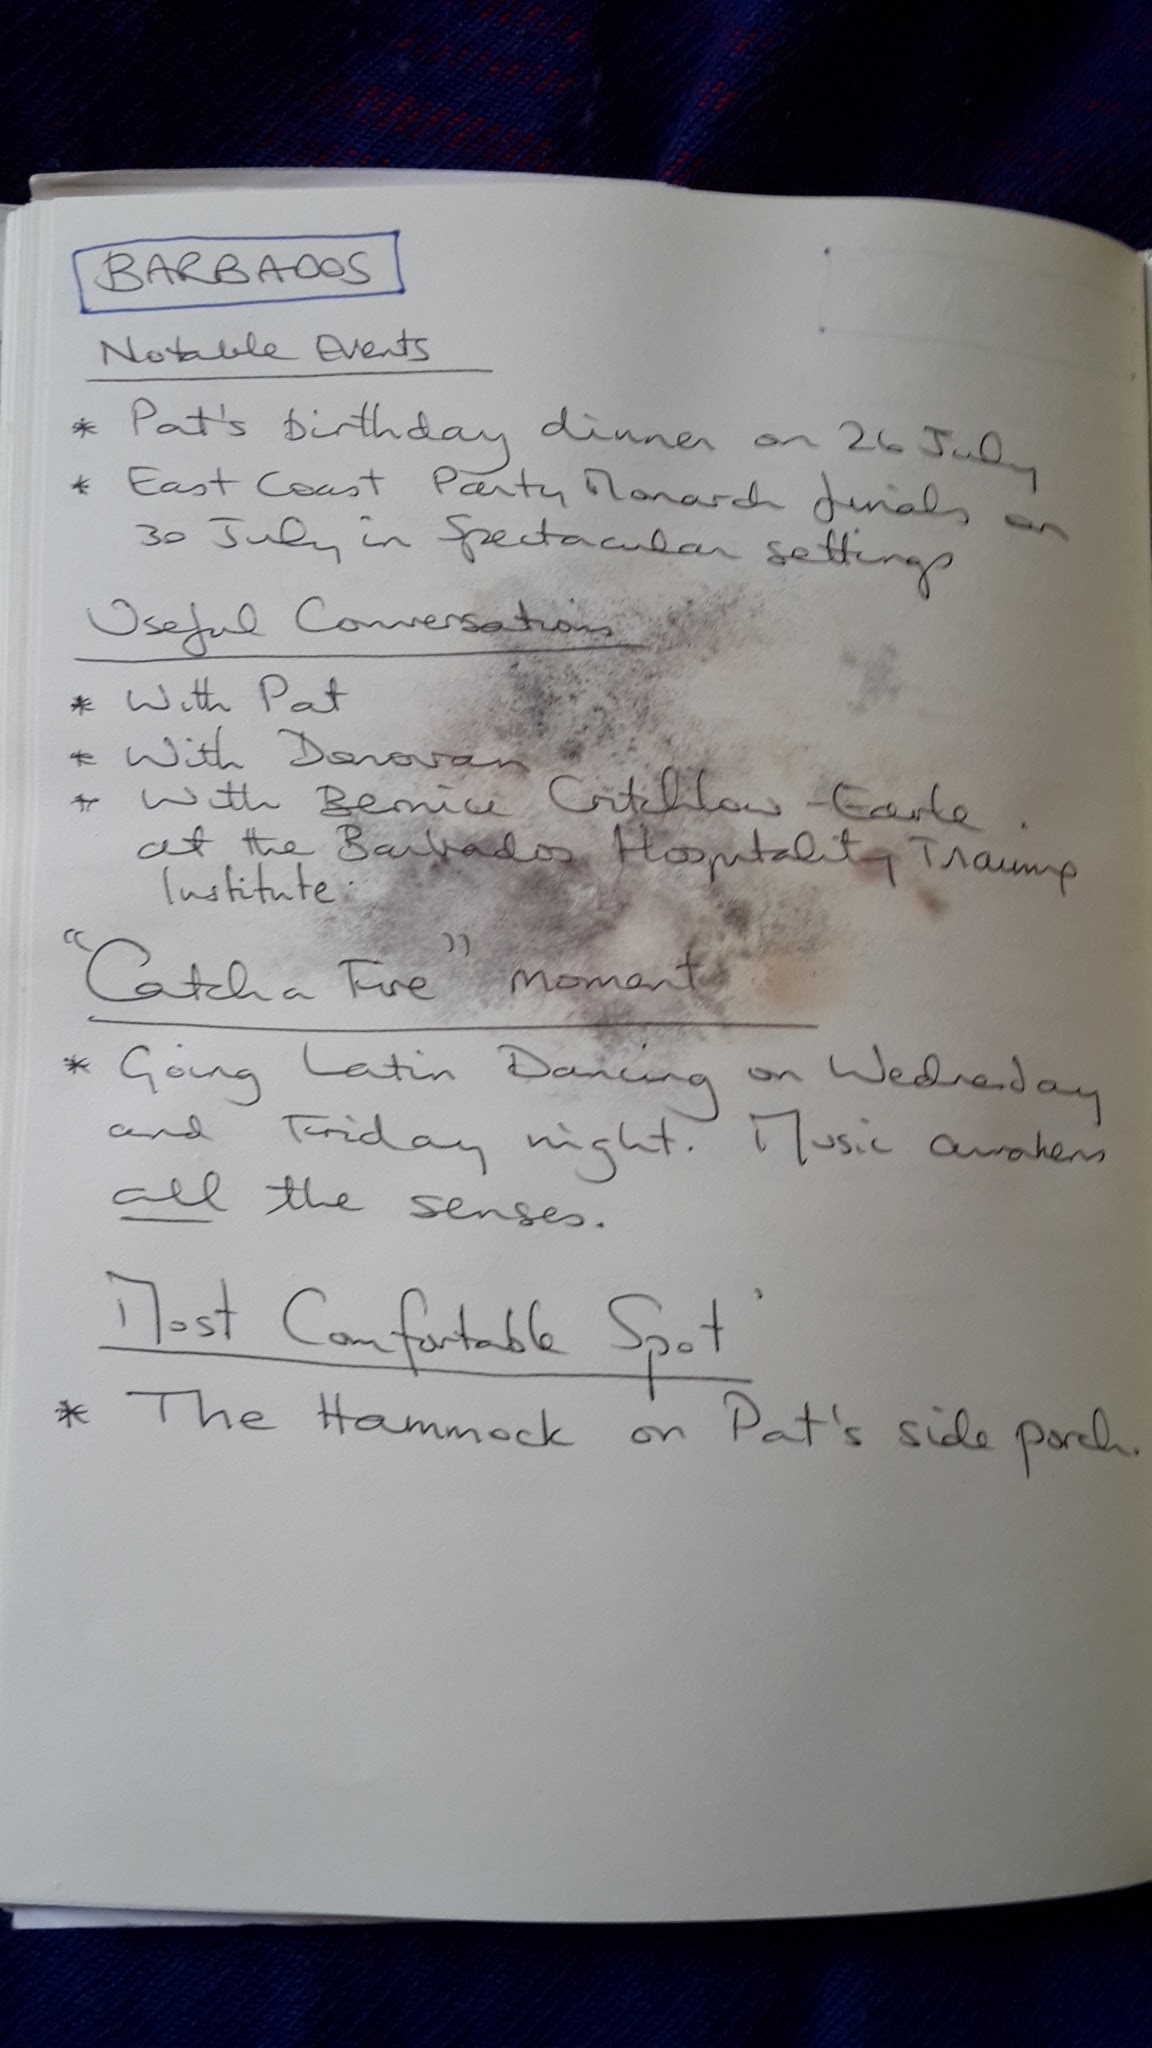 BARBADOS
Notable Events
* Pat's birthday dinner on 26 July
* East Coast Party Monarch finals on
30 July in Spectacular settings
Useful Conversations
* With Pat
* With Donovan
* With Bernice Critchlow-Earle.
at the Barbados Hospitality Training
Institute.
"Catch a Fire" moment
* Going Latin Dancing on Wednesday
and Friday night. Music awakens
all the senses.
Most Comfortable Spot
* The Hammock on Pat's side porch.